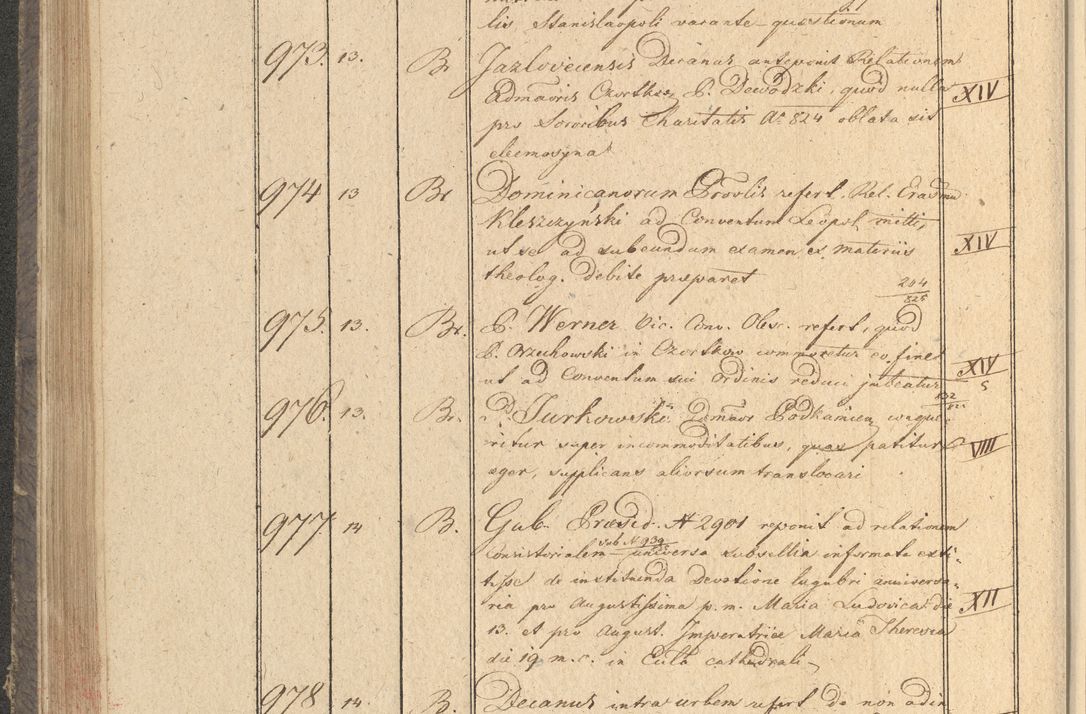 lis Stanislaopoli vacante quæstionum
973. 13. Br. Jazloveciensis Decanus anteponit Relationem
Admāoris Czortkov P. Dewodzki, quod nulla XIV
pro Sororibus Charitatis Aº 824 oblata sit
eleemosyna
974 13 Br Dominicanorum Provlis refert, Rel. Erasmu
Kleszczyński ad Conventum Leopol mitti,
ut se ad subeundum examen ex materiis XIV
theolog. debite præparet
204
825
975. 13. Br. P. Werner Vic. Conv. Obsc. refert, quod
P. Orzechowski in Czortkow commoretur eo fine XIV
ut ad Conventum sui Ordinis reduci jubeatur 5
132
976. 13. Br. P. Turkowski Admāor Podkamien conque-
ritur super incommoditatibus, quas patitur VIIII
æger, supplicans aliorsum translocari
977. 14 B. Gub. Præsid. N 2901 reponit ad relationem
sub N 939
Consistorialem universa subsellia informata exti-
tisse de instituenda Devotione lugubri anniversa-
ria pro Augustissima p. m. Maria Ludovica die XII
13. et pro August. Imperatrice Maria Theresia
die 19 m. c. in Eccla cathedrali
978 14. B. Decanus intra urbem refert de non adin